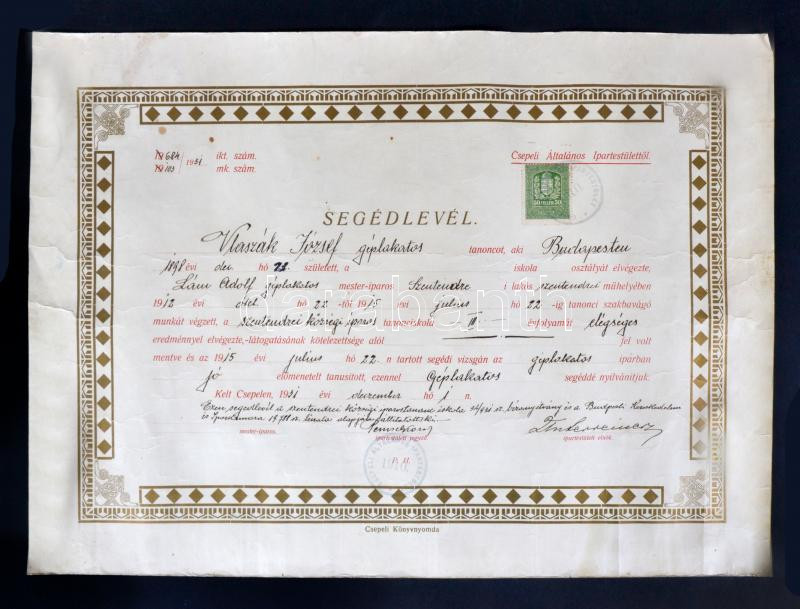 19684/1931 ikt. szám.
19103/ mk. szám.
Csepeli Általános Ipartestülettől.
50 FILLÉR 50
SEGÉDLEVÉL.
Vlaszák József géplakatos tanoncot, aki Budapesten
1898 évi dec hó 23. született, a iskola osztályát elvégezte,
Lám Adolf géplakatos mester-iparos Szentendre i lakós szentendrei műhelyében
1912 évi okt hó 22-től 1915 évi julius hó 22-ig tanonci szakbavágó
munkát végzett, a szentendrei községi iparos tanonciskola III évfolyamát elégséges
eredménnyel elvégezte,-látogatásának kötelezettsége alól fel volt
mentve és az 1915 évi julius hó 22.n tartott segédi vizsgán az géplakatos iparban
jó előmenetelt tanusított, ezennel Géplakatos segéddé nyilvánítjuk.
Kelt Csepelen, 1931 évi december hó 1 n.
Ezen segédlevél a szentendrei községi iparostanonc iskola sz. bizonyítvány és a Budpesti Kereskedelmi
és Iparkamara sz. alapján állíttatott ki.
mester-iparos. ipartestületi jegyző. ipartestületi elnök.
P. H.
CSEPELI ÁLTALÁNOS IPARTESTÜLET
1910.
Csepeli Könyvnyomda
darabanth